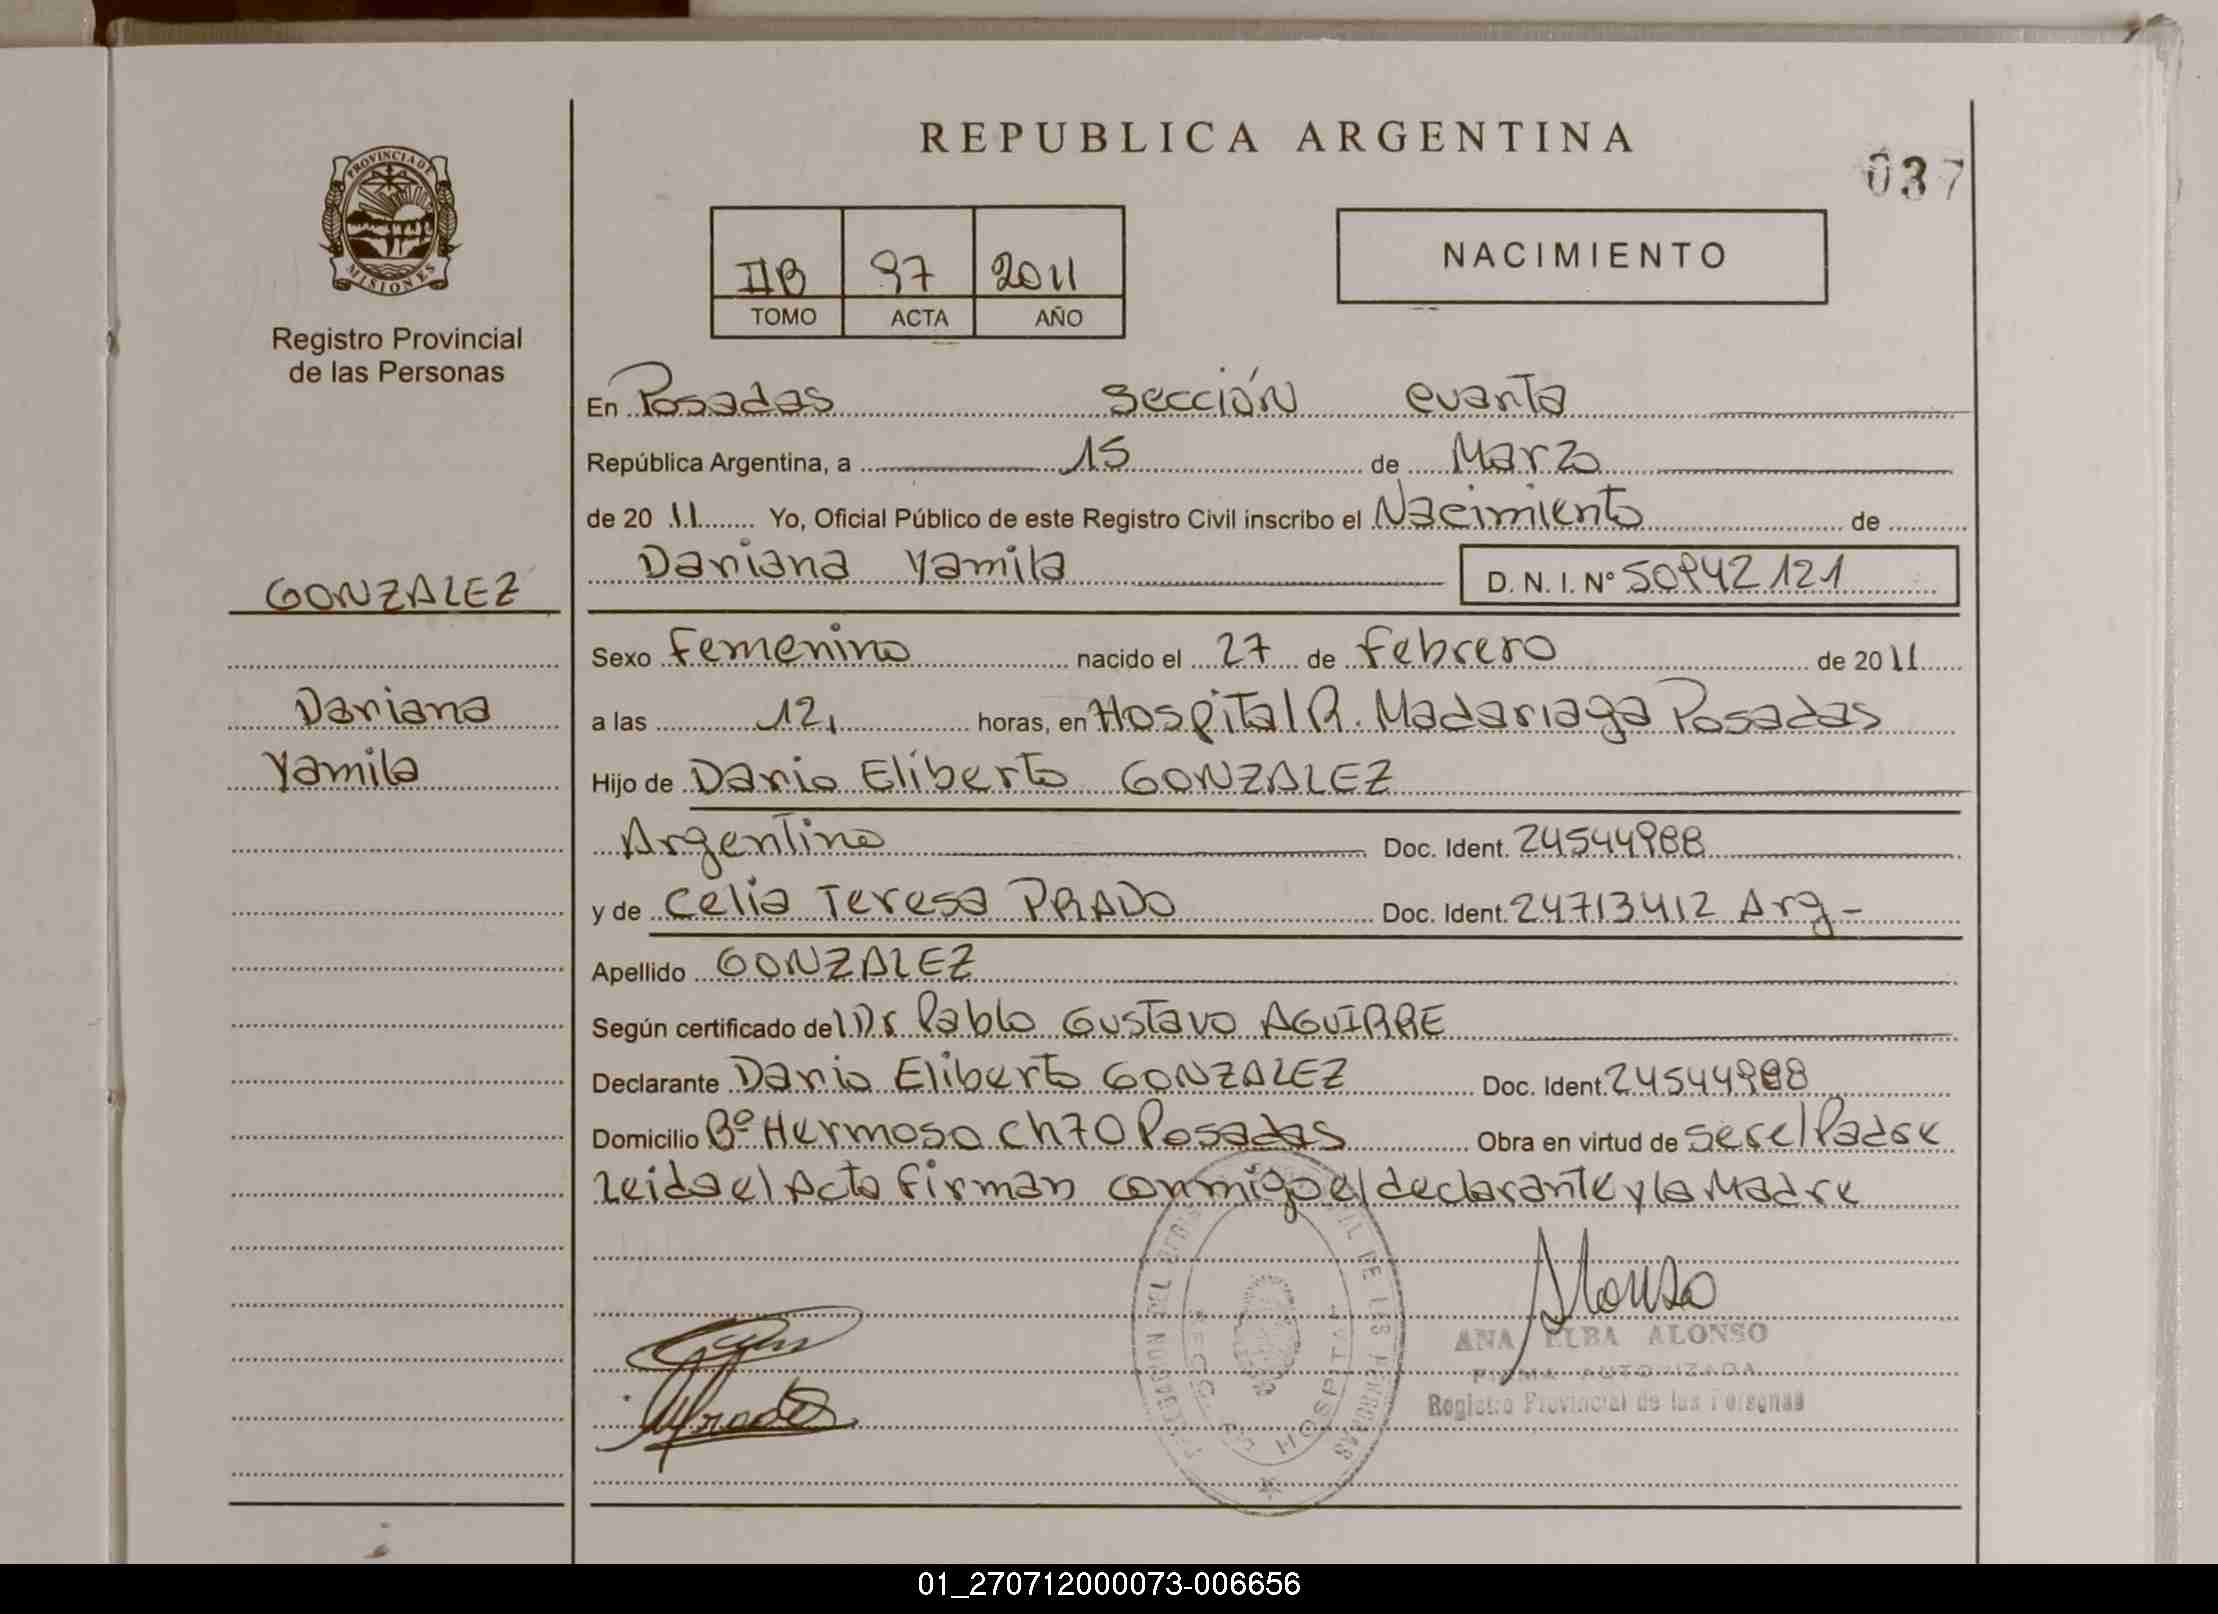 REPUBLICA ARGENTINA
037
PROVINCIA DE
MISIONES
Registro Provincial
de las Personas
IIB 97 2011
TOMO ACTA AÑO
NACIMIENTO
En Posadas Sección Cuarta
República Argentina, a 15 de Marzo
de 2011 Yo, Oficial Público de este Registro Civil inscribo el Nacimiento de
Dariana Yamila D. N. I. Nº 50942121
GONZALEZ
Dariana
Yamila
Sexo Femenino nacido el 27 de Febrero de 2011
a las 12, horas, en Hospital R. Madariaga Posadas
Hijo de Dario Eliberto GONZALEZ
Argentino Doc. Ident. 24544988
y de Celia Teresa PRADO Doc. Ident. 24713412 Arg-
Apellido GONZALEZ
Según certificado del Dr Pablo Gustavo AGUIRRE
Declarante Dario Eliberto GONZALEZ Doc. Ident. 24544988
Domicilio Bº Hermoso Ch 70 Posadas Obra en virtud de ser el Padre
Leida el Acta Firman conmigo el declarante y la Madre
Alonso
ANA ELBA ALONSO
FIRMA AUTORIZADA
Registro Provincial de las Personas
DE LAS PERSONAS
HOSPITAL
01_270712000073-006656